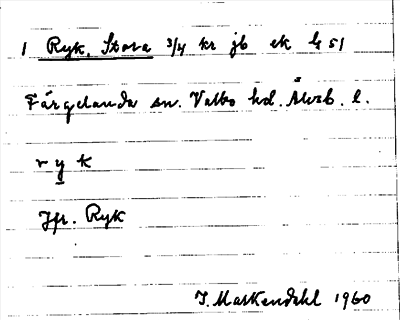 1 Ryk, Stora 3/4 kr jb ek G 51
Färgelanda sn. Valbo hd. Älvsb. l.
r y k
Jfr. Ryk
I. Markendahl 1960